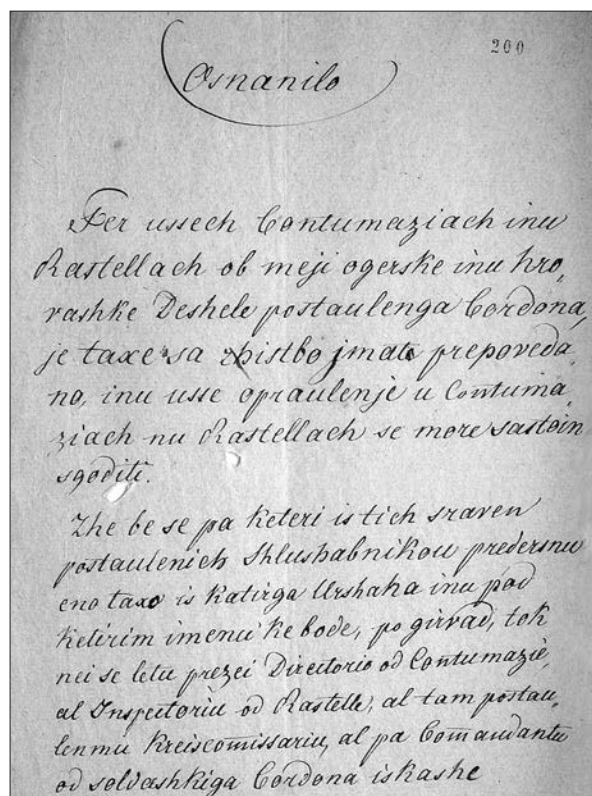 200
Osnanilo
Per ussech Contumaziach inu
Rastellach ob meji ogerske inu hro,
vashke Deshele postaulenga Cordona,
je taxe sa zhistbo jmate prepoveda,
no, inu usse opraulenje u Contuma,
ziach nu Rastellach se more sastoin
sgoditi.
Zhe be se pa keteri is tich sraven
postaulenich Shlushabnikou predersnu
eno taxo is katirga Urshaha inu pod
ketirim imenu ke bode, po girvad, tok
nei se letu prezei Directorio od Contumazie,
al Inspectoriu od Rastelle, al tam postau,
lenmu Kreiscomissariu, al pa Comandantu
od soldashkiga Cordona iskashe